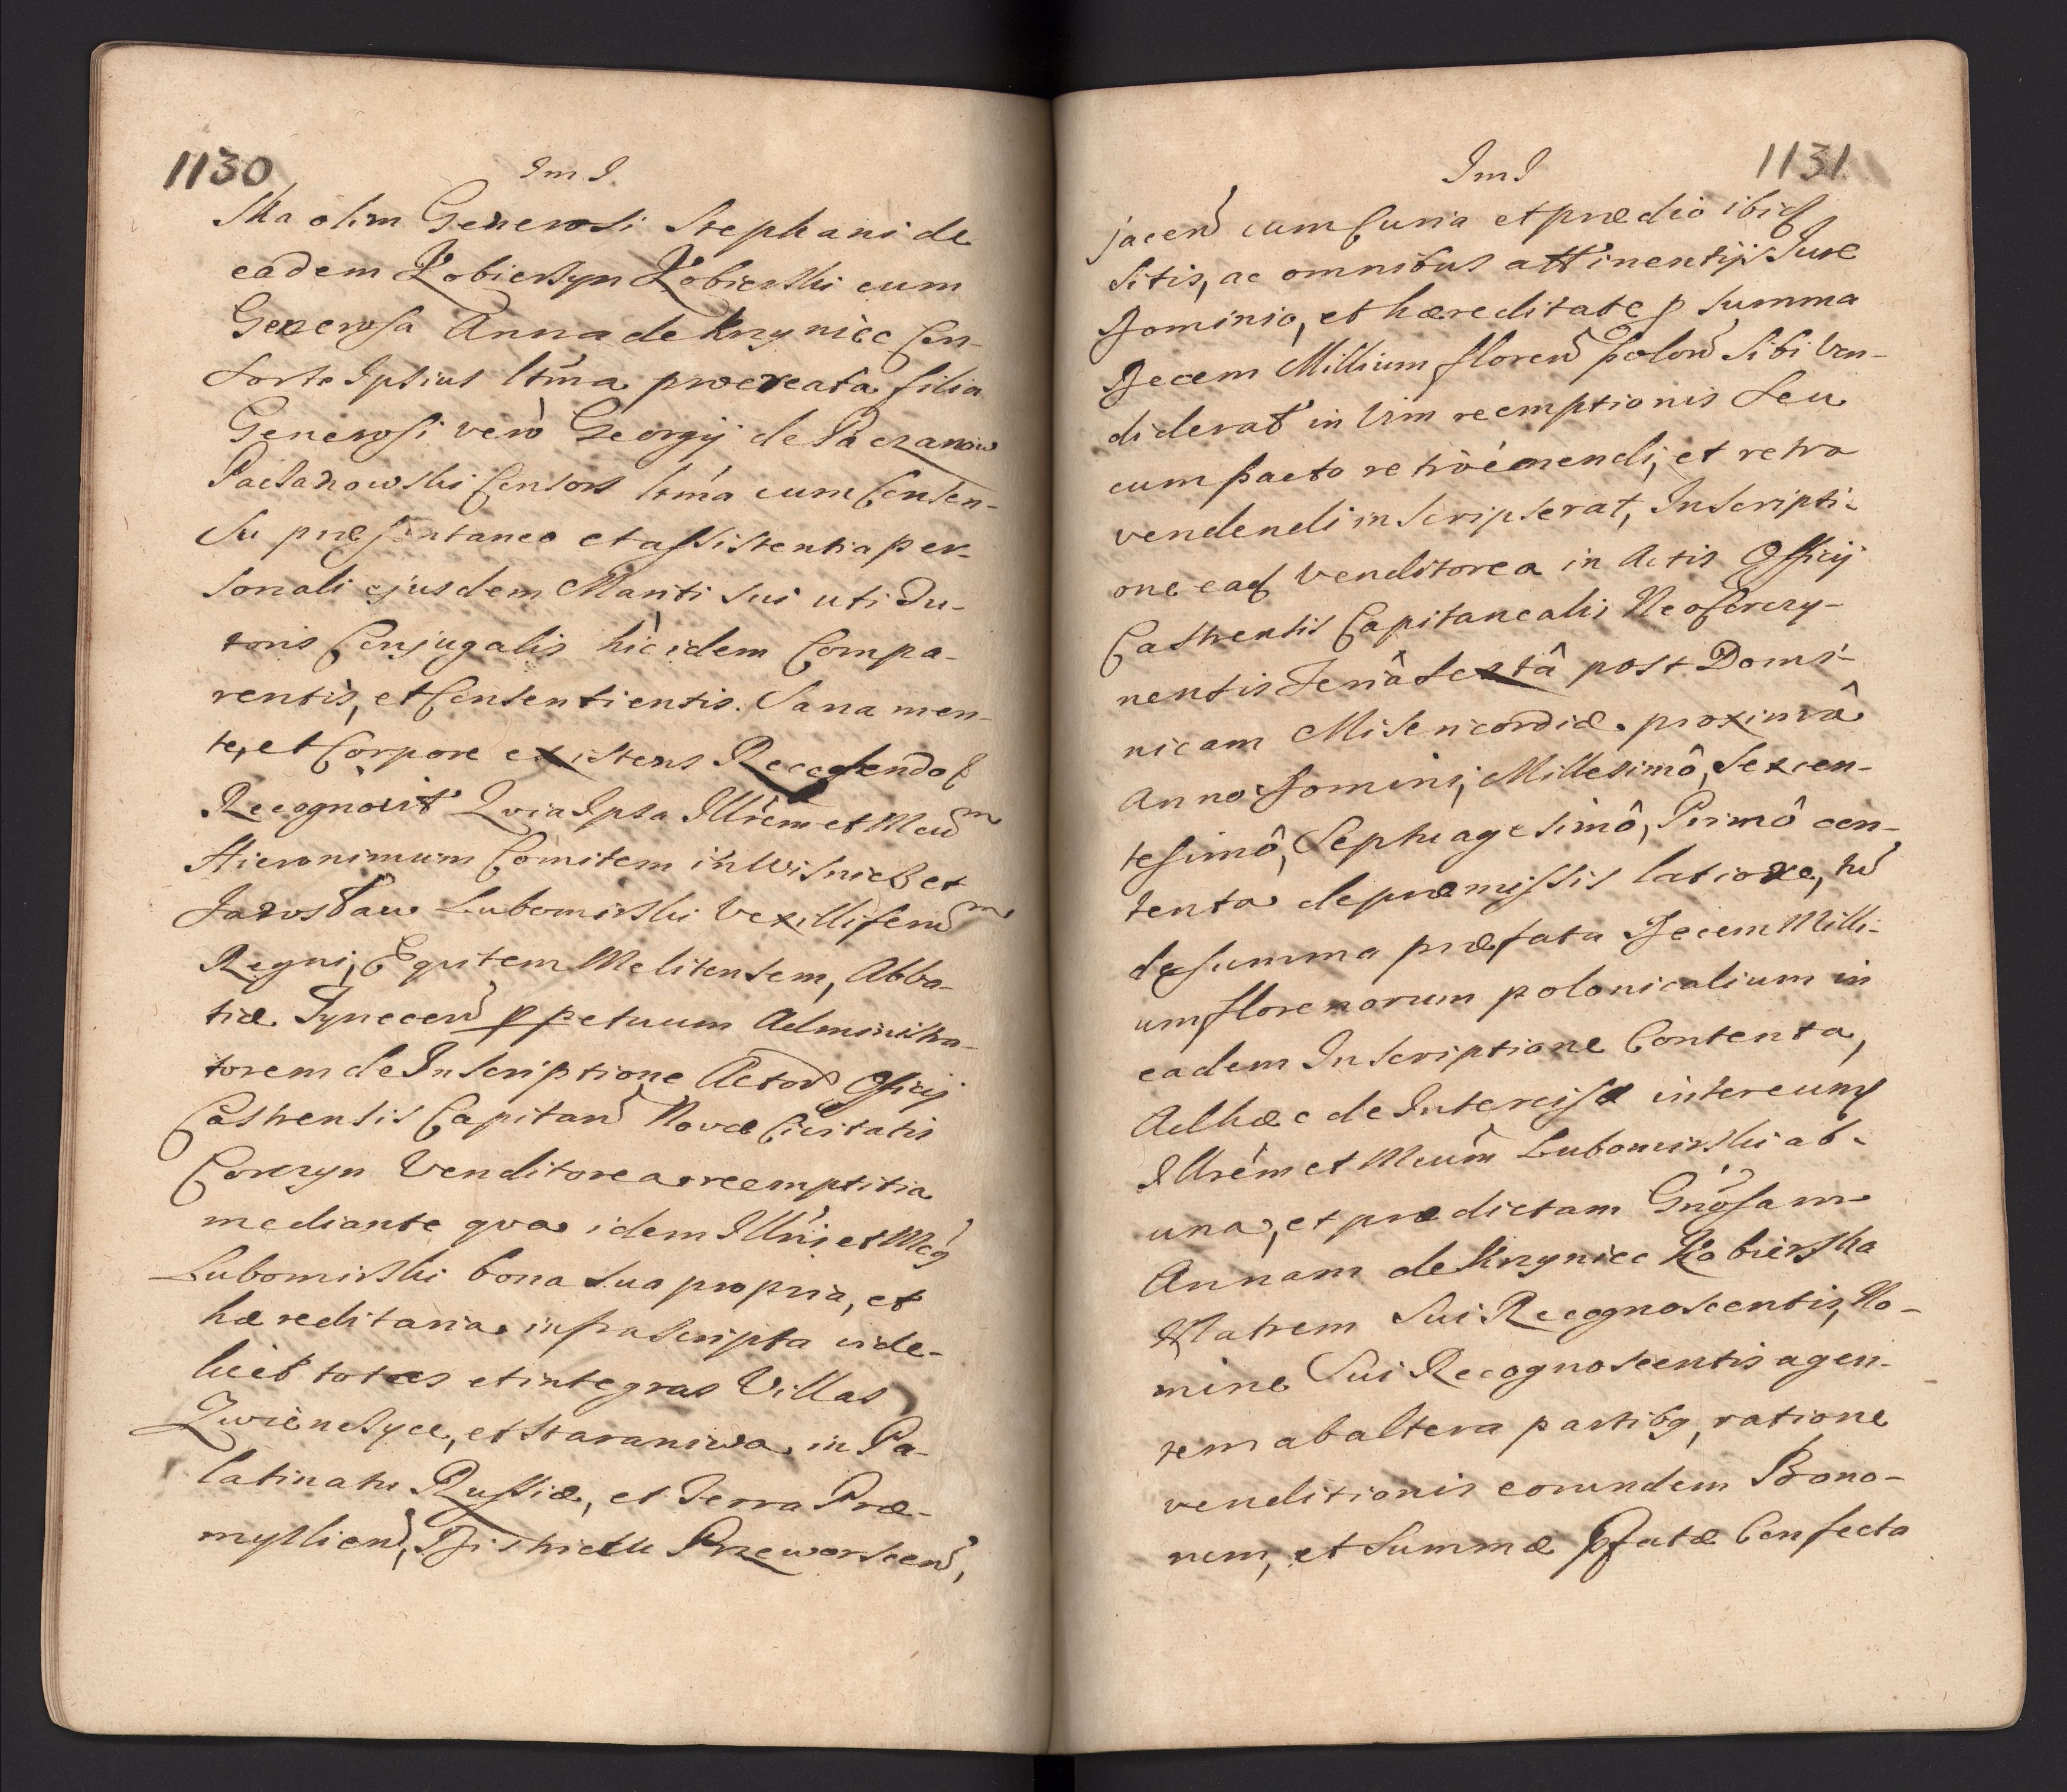 1130
Im I.
ska olim Generosi Stephani de
eadem Kobierzyn Kobierski cum
Generosa Anna de Knyniec Con-
sorte Ipsius ltma procreata filia
Generosi verò Georgij de Paczanow
Paczanowski Consors ltma cum Consen-
su præsentaneo et assistentia per-
sonali ejusdem Mariti sui uti Tu-
toris Conjugalis hìc idem Compa-
rentis, et Consentientis. Sana men-
te, et Corpore existens Recedendoq
Recognovit Quia Ipsa Illrem et Mcum
Hieronimum Comitem in Wisnicz et
Jarosław Lubomirski Vexilliferum
Regni, Equitem Melitensem, Abba-
tiæ Tynecen ppetuum Administra-
torem de Inscriptione Actor Officij
Castrensis Capitan Novæ Civitatis
Corczyn Venditorea reemptitia
mediante qva idem Illris et Mcq
Lubomirski bona sua propria, et
hæreditaria infrascripta vide-
licet totas et integras Villas
Zwienczyce, et Staraniwa in Pa-
latinatu Russiæ, et Terra Præ-
myslien, Districtu Przeworscen,
1131
Im I
jacen cum Curia et prædio ibiq
sitis, ac omnibus attinentijs Jure
Dominio, et hæreditate p summa
Decem Millium floren polon sibi Ven-
diderat in Vim reemptionis seu
cum pacto retroèmendi, et retro
vendendi inscripserat, Inscripti-
one eaq Venditorea in Actis Officij
Castrensis Capitanealis Neocorczy-
nensis Feriâ Sextâ post Domi-
nicam Misericordiæ proximâ
Anno Domini, Millesimô, Sexcen-
tesimô, Septuagesimô, Primô con-
tenta de præmissis latiore, tu
de summa præfata Decem Milli-
um florenorum polonicalium in
eadem Inscriptione Contenta,
Adhæc de Intercisa inter eumq
Illrem et Mcum Lubomirski ab
una, et prædictam Gnosam
Annam de Knyniec Kobierska
Matrem Sui Recognoscentis, No-
mine Sui Recognoscentis agen-
tem ab altera partibq, ratione
venditionis eorundem Bono-
rum, et Summæ Pfatæ Confecta